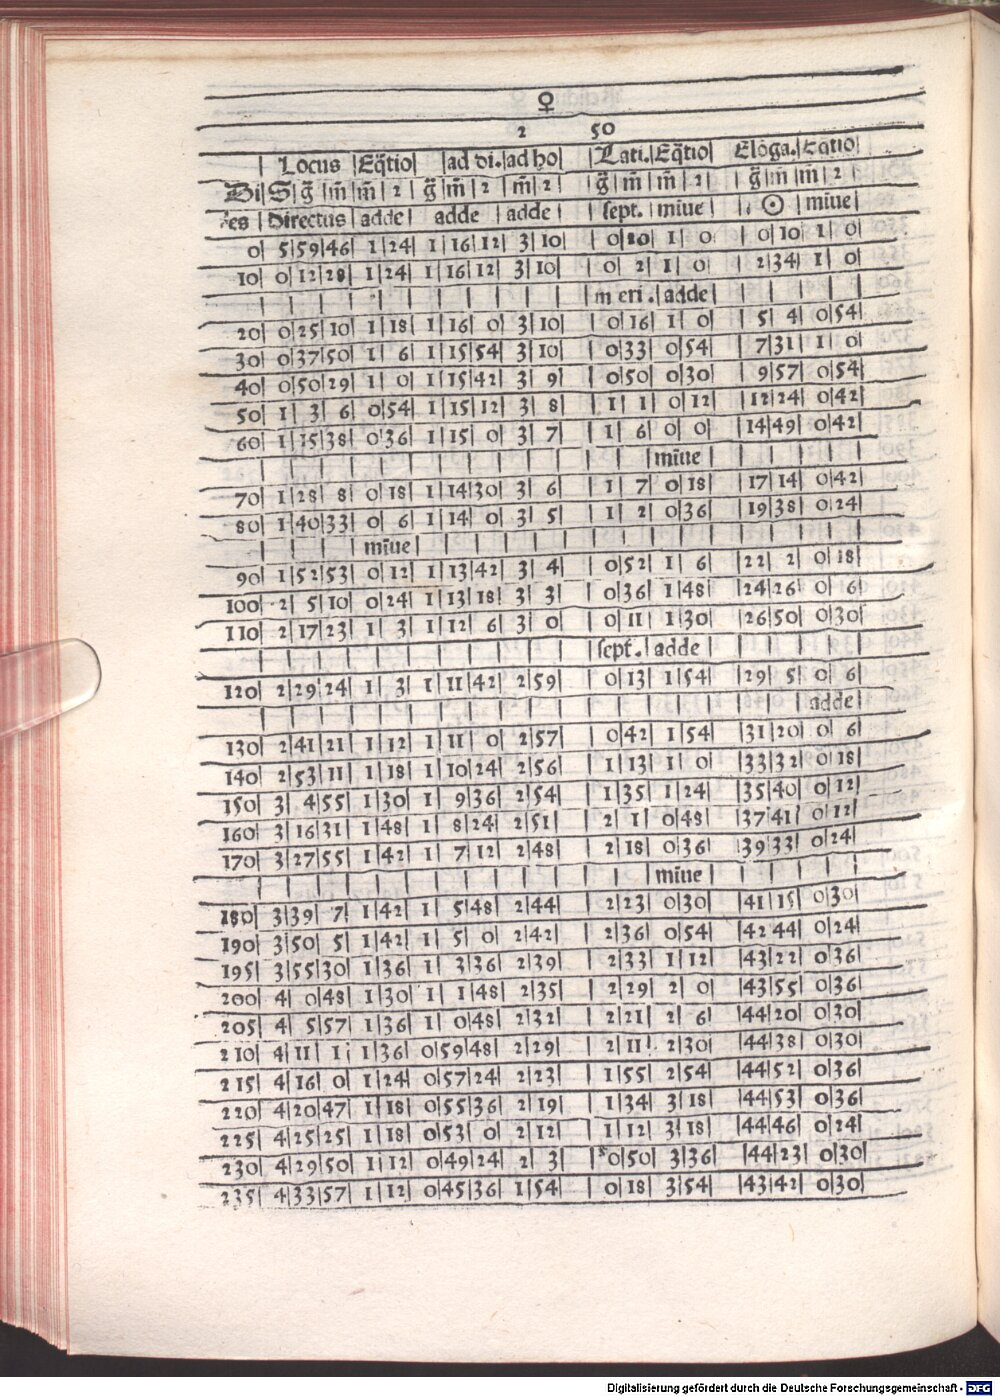 ♀
2 50
| Locus |Eq̃tio| |ad di.|ad ho| |Lati.|Eq̃tio| Elõga.|Eq̃tio|
Di|S|g̃|m̃|m̃|2 g̃|m̃|2 m̃|2| g̃|m̃ m̃|2| g̃|m̃ m̃|2|
es |directus|adde| adde |adde| |sept.|miue| |. ☉ |miue|
0| 5|59|46| 1|24| 1|16|12| 3|10| |0|20| 1|0 |0|10| 1|0|
10| 0|12|28| 1|24| 1|16|12| 3|10| |0|2| 1|0| |2|34| 1|0|
|meri.|adde|
20| 0|25|10| 1|18| 1|16|0| 3|10| |0|16| 1|0 |5|4| 0|54|
30| 0|37|50| 1|6| 1|15|54| 3|10| |0|33| 0|54| |7|31| 1|0|
40| 0|50|29| 1|0| 1|15|42| 3|9| |0|50| 0|30| |9|57| 0|54|
50| 1|3|6| 0|54| 1|15|12| 3|8| |1|1| 0|12| |12|24| 0|42|
60| 1|15|38| 0|36| 1|15|0| 3|7| |1|6| 0|0| |14|49| 0|42|
|miue|
70| 1|28|8| 0|18| 1|14|30| 3|6| |1|7| 0|18| |17|14| 0|42|
80| 1|40|33| 0|6| 1|14|0| 3|5| |1|2| 0|36| |19|38| 0|24|
|miue|
90| 1|52|53| 0|12| 1|13|42| 3|4| |0|52| 1|6| |22|2| 0|18|
100| 2|5|10| 0|24| 1|13|18| 3|3| |0|36| 1|48| |24|26| 0|6|
110| 2|17|23| 1|3| 1|12|6| 3|0| |0|11| 1|30| |26|50| 0|30|
|sept.|adde|
120| 2|29|24| 1|3| 1|11|42| 2|59| |0|13| 1|54| |29|5| 0|6|
adde|
130| 2|41|21| 1|12| 1|11|0| 2|57| |0|42| 1|54| |31|20| 0|6|
140| 2|53|11| 1|18| 1|10|24| 2|56| |1|13| 1|0| |33|32| 0|18|
150| 3|4|55| 1|30| 1|9|36| 2|54| |1|35| 1|24| |35|40| 0|12|
160| 3|16|31| 1|48| 1|8|24| 2|51| |2|1| 0|48| |37|41| 0|12|
170| 3|27|55| 1|42| 1|7|12| 2|48| |2|18| 0|36| |39|33| 0|24|
|miue|
180| 3|39|7| 1|42| 1|5|48| 2|44| |2|23| 0|30| |41|15| 0|30|
190| 3|50|5| 1|42| 1|5|0| 2|42| |2|36| 0|54| |42 44| 0|24|
195| 3|55|30| 1|36| 1|3|36| 2|39| |2|33| 1|12| |43|22| 0|36|
200| 4|0|48| 1|30| 1|1|48| 2|35| |2|29| 2|0| |43|55| 0|36|
205| 4|5|57| 1|36| 1|0|48| 2|32| |2|21| 2|6| |44|20| 0|30|
210| 4|11|1| 1|36| 0|59|48| 2|29| |2|11| 2|30| |44|38| 0|30|
215| 4|16|0| 1|24| 0|57|24| 2|23| |1|55| 2|54| |44|52| 0|36|
220| 4|20|47| 1|18| 0|55|36| 2|19| |1|34| 3|18| |44|53| 0|36|
225| 4|25|25| 1|18| 0|53|0| 2|12| |1|12| 3|18| |44|46| 0|24|
230| 4|29|50| 1|12| 0|49|24| 2|3| |0|50| 3|36| |44|23| 0|30|
235| 4|33|57| 1|12| 0|45|36| 1|54| |0|18| 3|54| |43|42| 0|30|
Digitalisierung gefördert durch die Deutsche Forschungsgemeinschaft - DFG